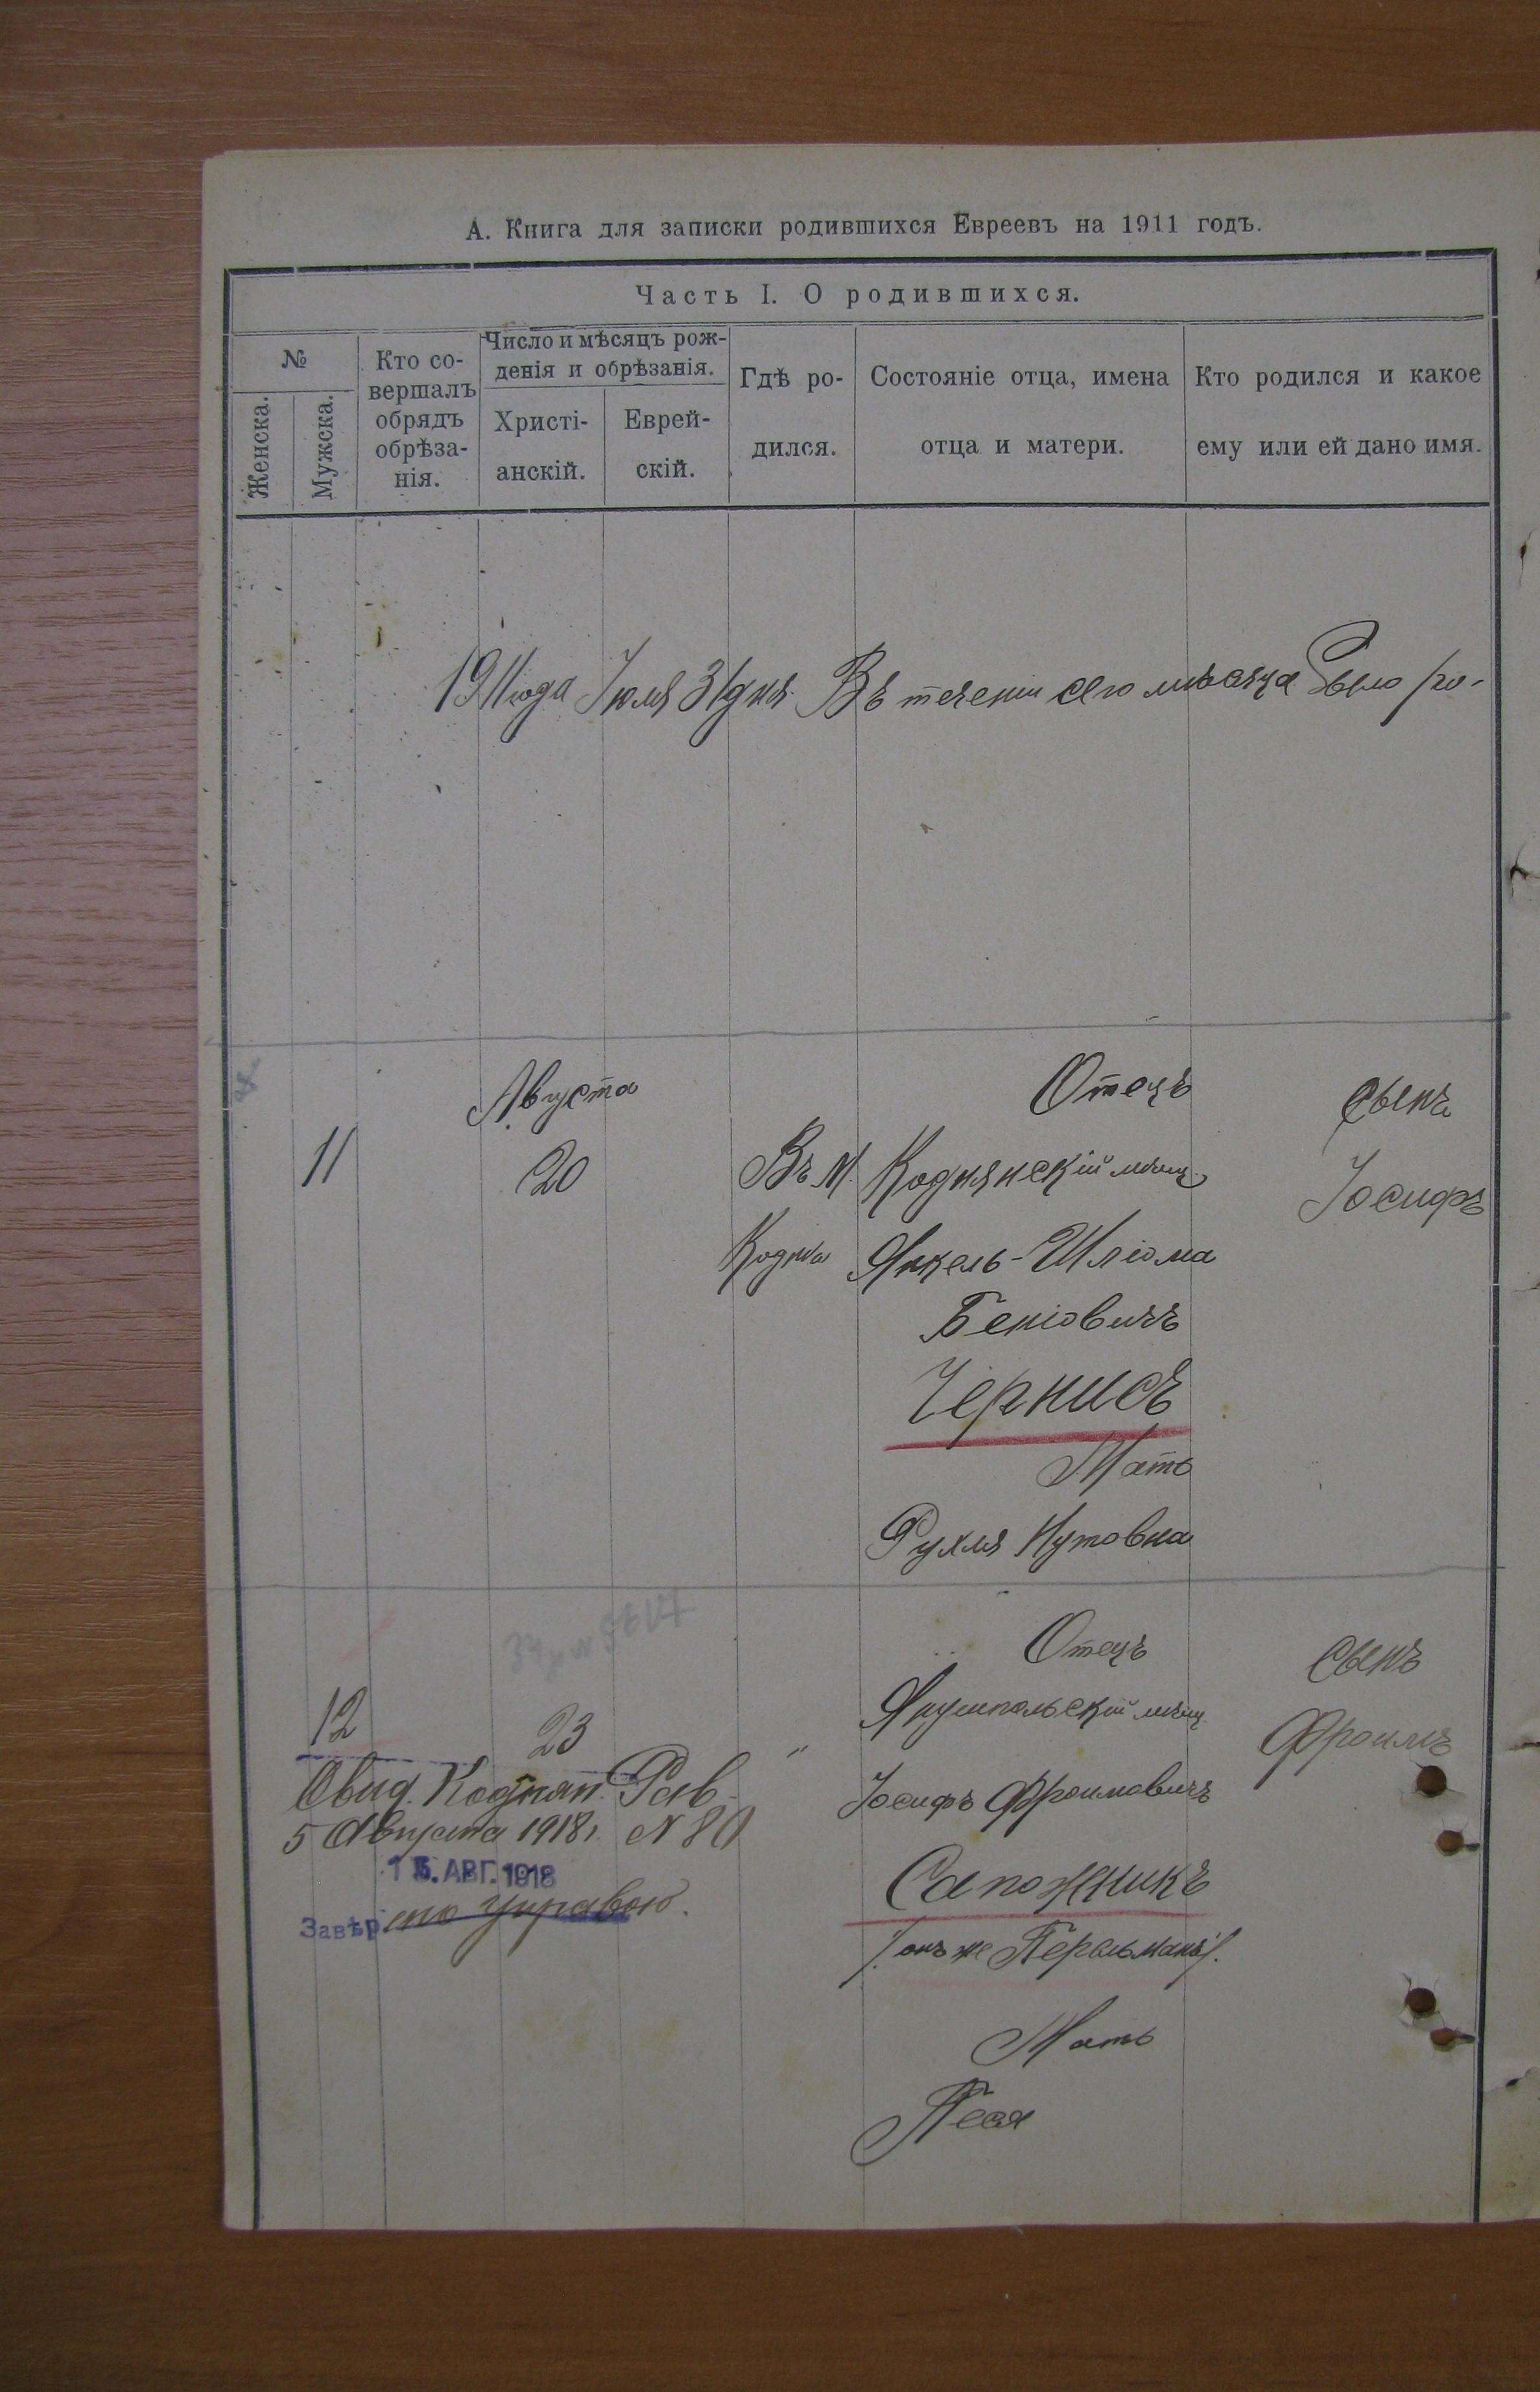 А. Книга для записки родившихся Евреевъ на 1911 годъ.
Часть I. О родившихся.
№
Женска.
Мужска.
Кто со-
вершалъ
обрядъ
обрѣза-
нія.
Число и мѣсяцъ рож-
денія и обрѣзанія.
Христі-
анскій.
Еврей-
скій.
Гдѣ ро-
дился.
Состояніе отца, имена
отца и матери.
Кто родился и какое
ему или ей дано имя.
1911 года Іюля 31 дня. Въ теченіи сего мѣсяца было ро-
Августа
11
20
Въ М.
Кодня
Отецъ
Коднянскій мѣщ.
Янкель-Шліома
Беніовичъ
Чернисъ
Мать
Рухля Нутовна
сынъ
Іосифъ
12
23
"
Отецъ
Янушпольскій мѣщ.
Іосифъ Фроимовичъ
Сапожникъ
/онъ же Перельманъ/.
Мать
Песя
сынъ
Фроимъ
Свид. Коднян. Рав.
5 Августа 1918 г. № 80
15. АВГ. 1918
Завѣр ено управою.